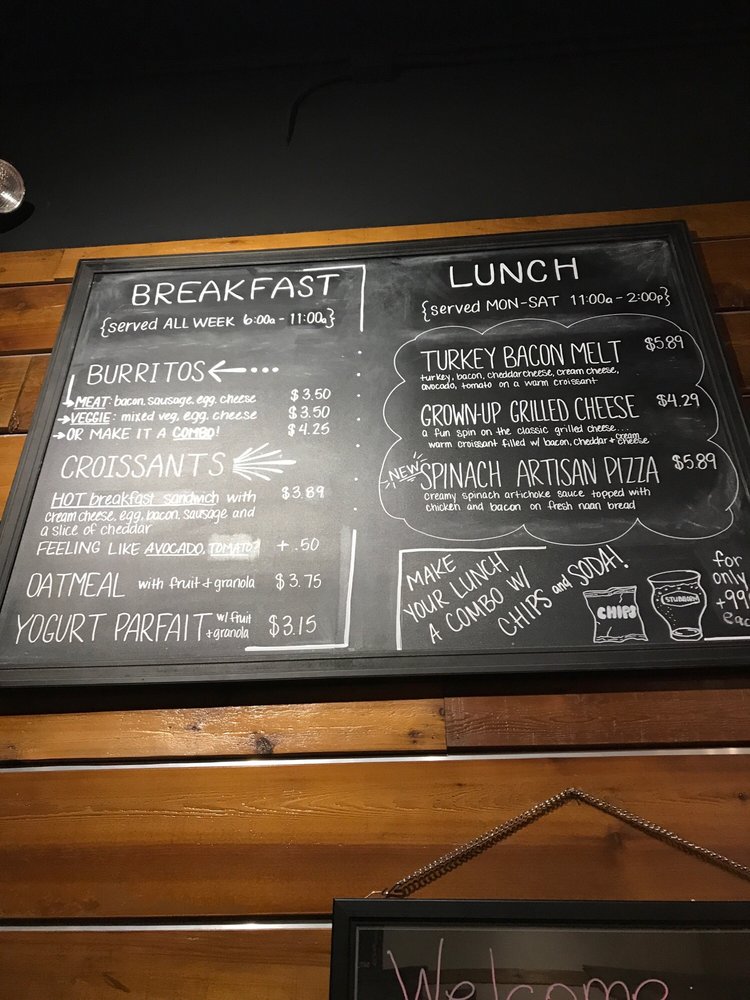 BREAKFAST
{served ALL WEEK 6:00a - 11:00a}
BURRITOS
MEAT: bacon, sausage, egg, cheese $3.50
VEGGIE: mixed veg, egg, cheese $3.50
OR MAKE IT A COMBO! $4.25
CROISSANTS
HOT breakfast sandwich with $3.89
cream cheese, egg, bacon, sausage and
a slice of cheddar
FEELING LIKE AVOCADO, TOMATO? +.50
OATMEAL with fruit + granola $3.75
YOGURT PARFAIT w/ fruit + granola $3.15
LUNCH
{served MON-SAT 11:00a - 2:00p}
TURKEY BACON MELT $5.89
turkey, bacon, cheddar cheese, cream cheese,
avocado, tomato on a warm croissant
GROWN-UP GRILLED CHEESE $4.29
a fun spin on the classic grilled cheese...
warm croissant filled w/ bacon, cheddar + cream cheese
NEW SPINACH ARTISAN PIZZA $5.89
creamy spinach artichoke sauce topped with
chicken and bacon on fresh naan bread
MAKE
YOUR LUNCH
A COMBO W/
CHIPS and SODA!
CHIPS
STUBBORN
for
only
+99¢
Welcome